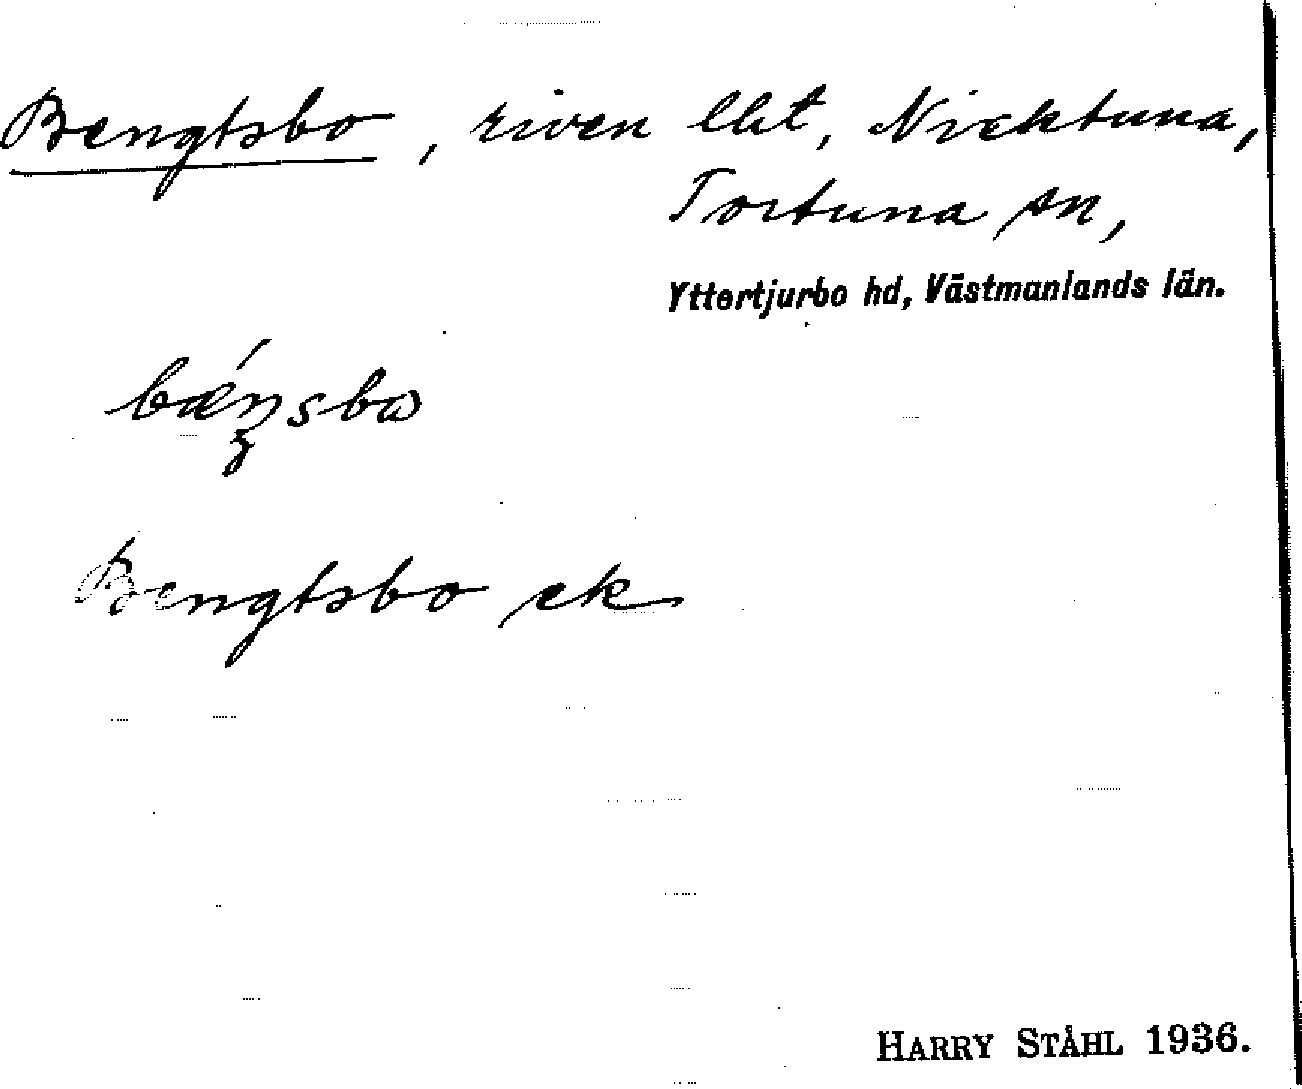 Bengtsbo, riven lht, Nicktuna,
Tortuna sn,
Yttertjurbo hd, Västmanlands län.
bǽŋsbω
Bengtsbo ek
HARRY STÅHL 1936.